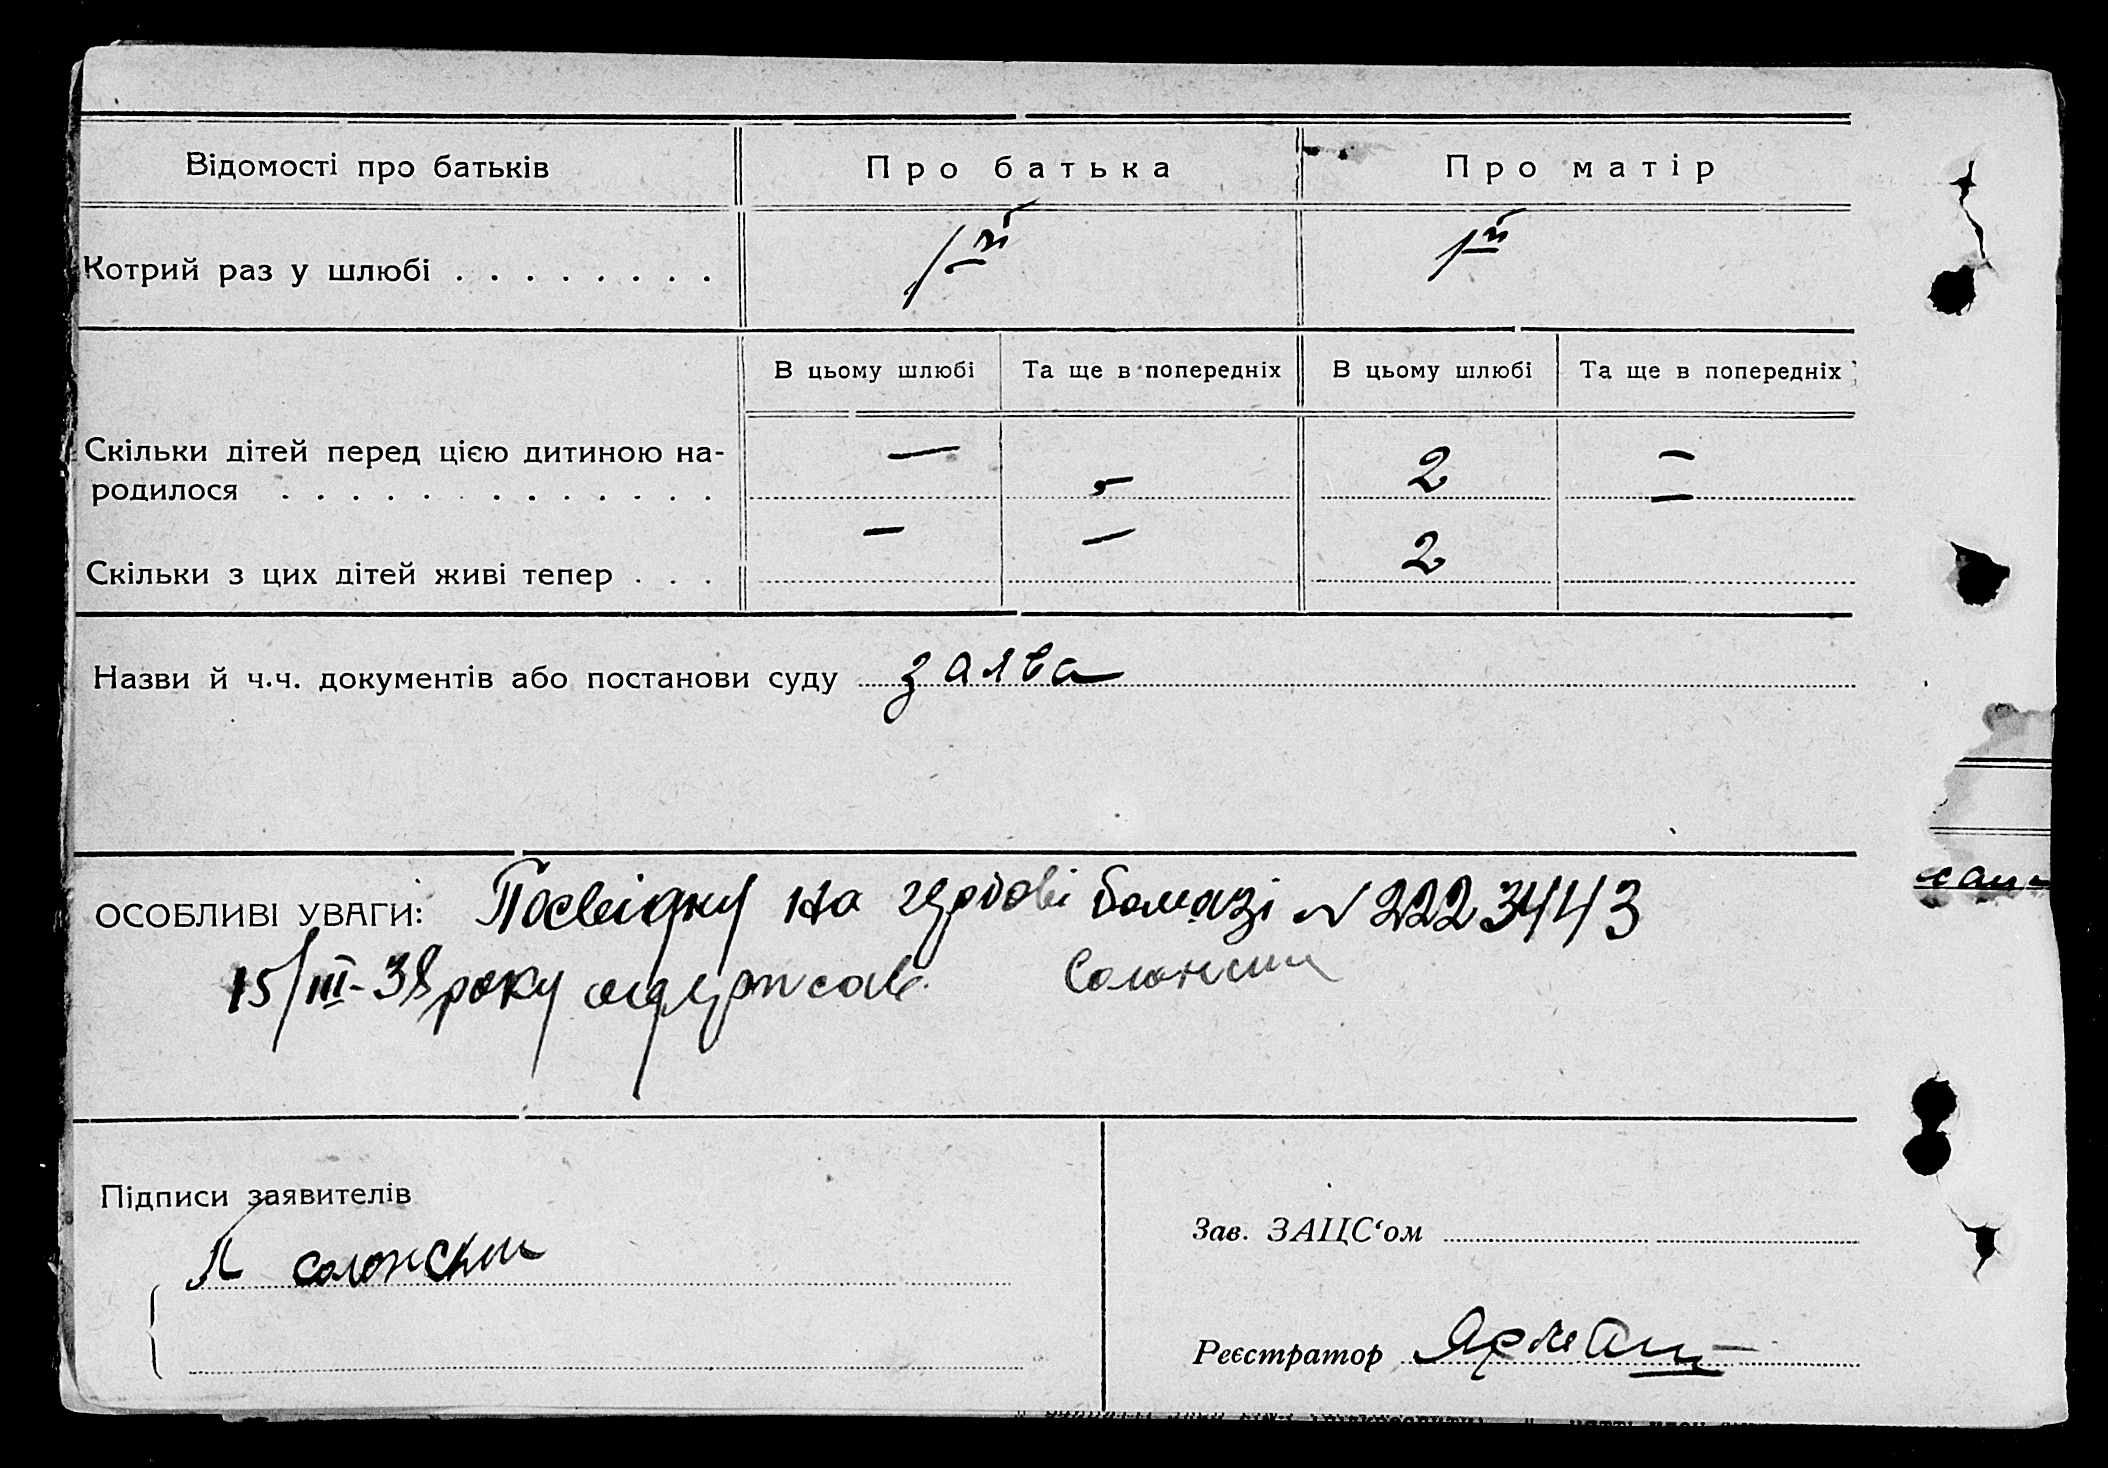 Відомості про батьків Про батька Про матір
Котрий раз у шлюбі . . . . . . . . 1й 1й
В цьому шлюбі Та ще в попередніх В цьому шлюбі Та ще в попередніх
Скільки дітей перед цією дитиною на-
родилося . . . . . . . . . . . . . — — 2 —
Скільки з цих дітей живі тепер . . . — — 2 —
Назви й ч.ч. документів або постанови суду заява
ОСОБЛИВІ УВАГИ: Посвідку на гербові бомазі № 2223443
15/III-38 року одержав. Солонски
Підписи заявителів
Л Солонски
Зав. ЗАЦС‘ом
Реєстратор Ярмаш